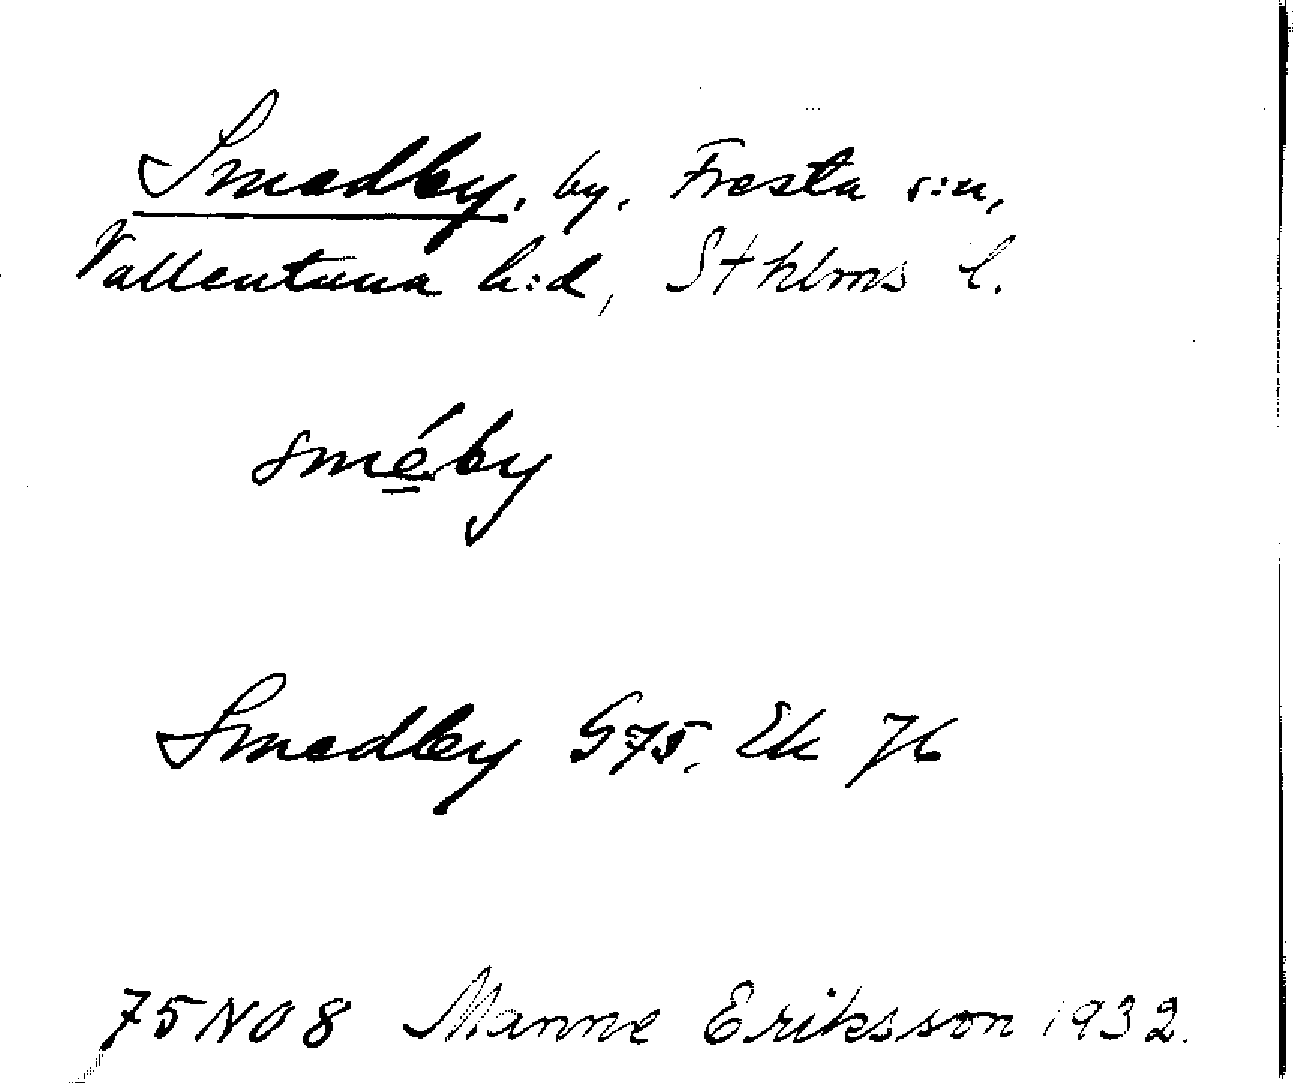 Smedby, by, Fresta s:n,
Vallentuna h:d, Sthlms l.
sméby
Smedby G75, Ek 76
75 NO 8 Manne Eriksson 1932.